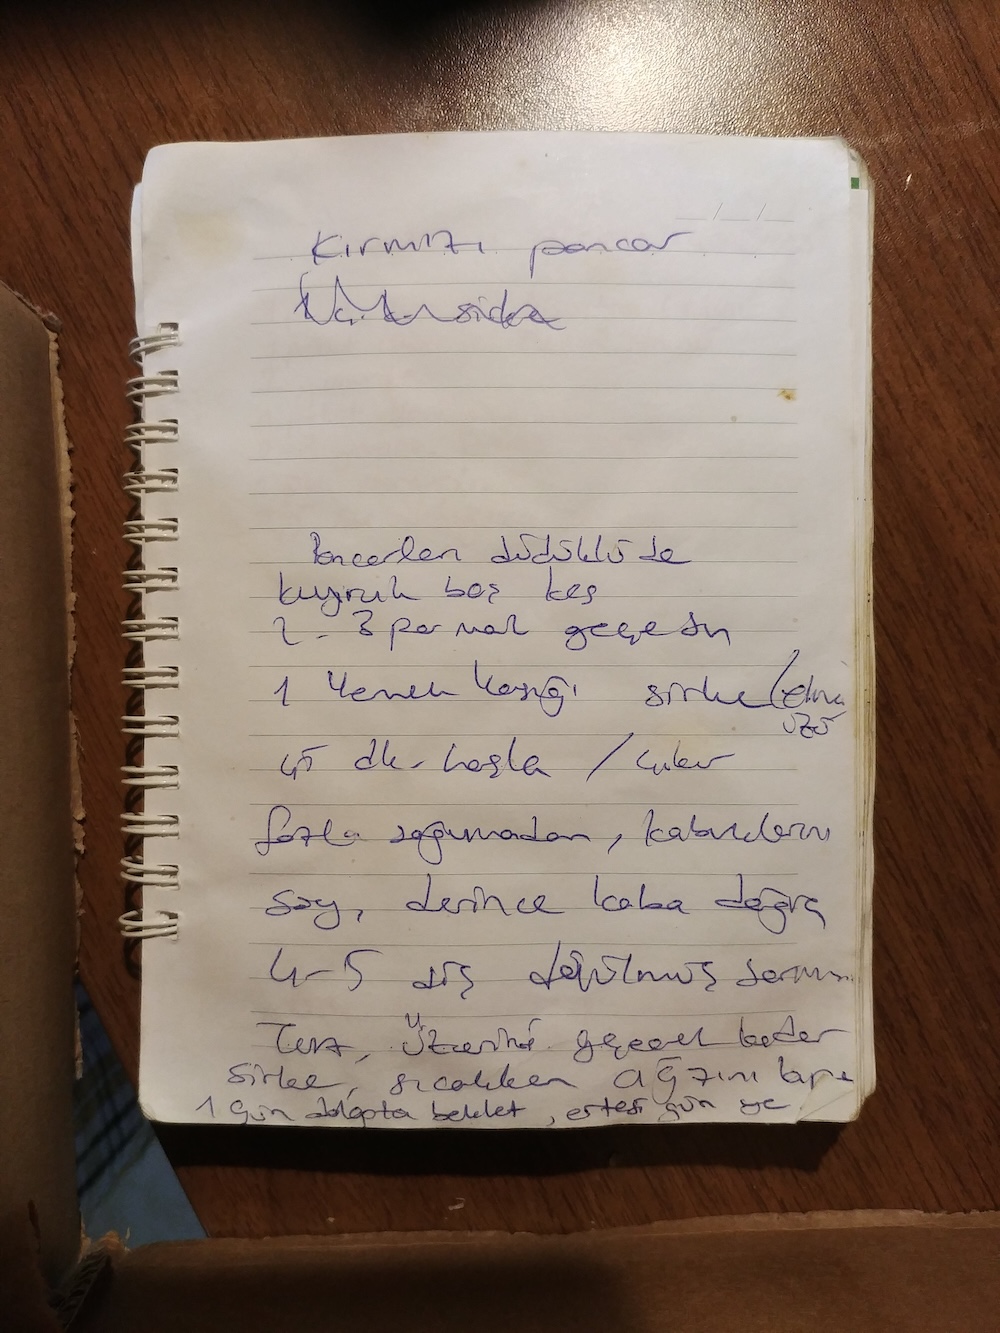 Kırmızı pancar
sirke
Pancarları düdüklüde
kuyruk baş kes
2-3 parmak geçesin
1 yemek kaşığı sirke (elma
üzü
45 dk. haşla / çıkar
fazla soğumadan, kabukların
soy, derince kaba doğra
4-5 diş dövülmüş sarms.
Tuz, Üzerini geçecek kadar
sirke, sıcakken ağzını kapa
1 gün dolapta beklet, ertesi gün ye